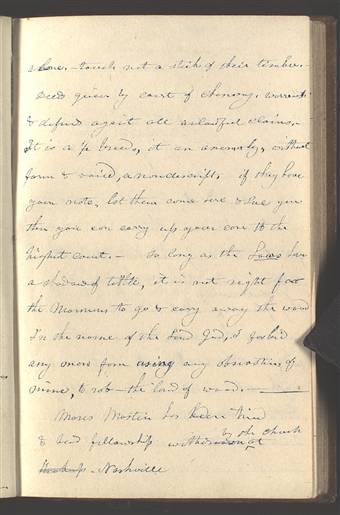 alone. - touch not a stick of their timber. -
Deed given by court of chancery, warrants
& defend against all unlawful claims, -
It is a qu. deed, it an anomaly, without
form & void, a nondescript, if they have
your note, let them come here & sue you
then you can carry up your case to the
highest court. - so long as the Laws have
a shadow of tittle, it is not right for
the Mormons to go & carry away the wood
In the name of the Lord God, I forbid
any man from using any observations of
mine, to rob - the land of wood. -
Moses Martin has been tried
& had fellowship withdrawn by the church
at Nashville